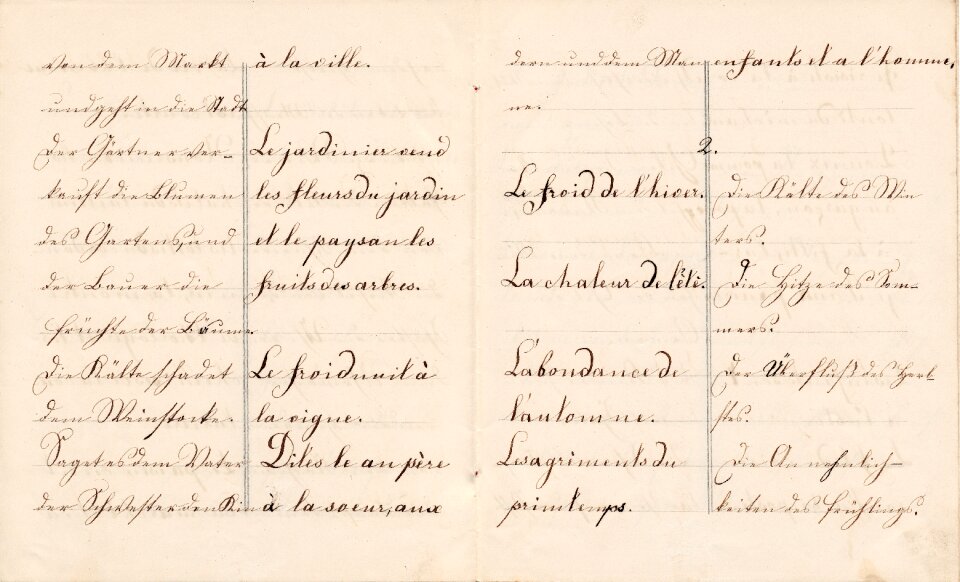 von dem Markt
und geht in die Stadt
Der Gärtner ver-
kauft die Blumen
des Gartens, und
der Bauer die
früchte der Bäume.
Die Kälte schadet
dem Weinstocke.
Saget es dem Vater
der Schwester den Kin
à la ville.
Le jardinier vend
les fleurs du jardin
et le paysan les
fruits des arbres.
Le froid nuit à
la vigne.
Dites le au père
à la soeur, aux
dern und dem Man
ne.
enfants et a l'homme.
2.
Le froid de l'hiver.
La chaleur de l'été.
L'abondance de
l'automne.
Les agréments du
printemps.
Die Kälte des Win
ters.
Die Hitze des Som-
mers.
Der Überfluß des Herb-
stes.
Die Annehmlich-
keiten des frühlings.